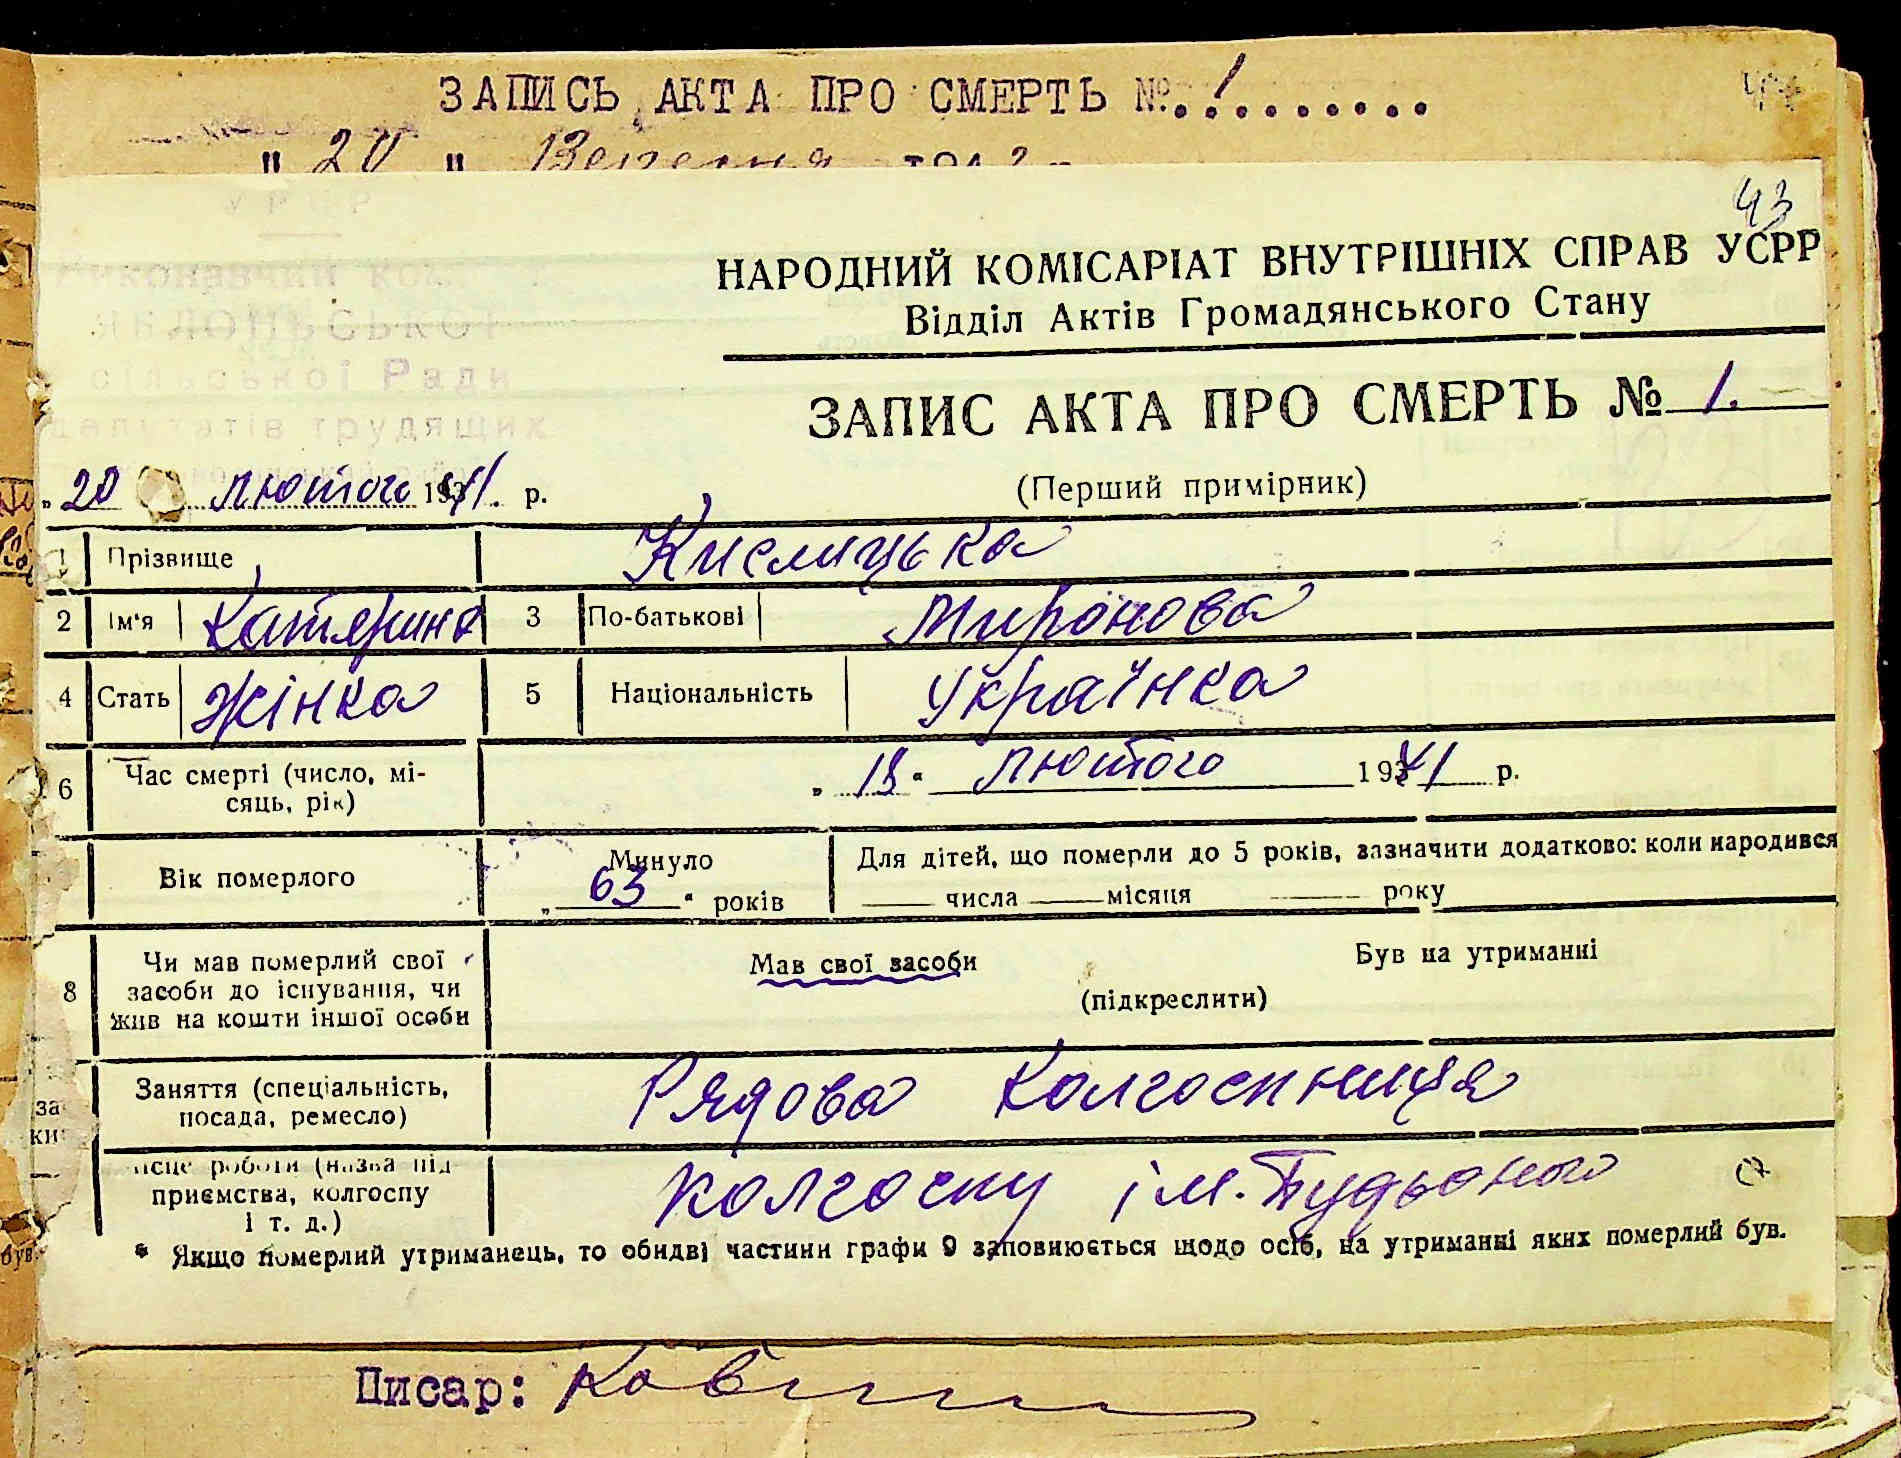 ЗАПИСЬ АКТА ПРО СМЕРТЬ №. 1
" 20 " Вересня 194
43
УРСР
Виконавчий ком
ЯБЛОНСЬКОЇ
сільської Ради
депутатів трудящих
НАРОДНИЙ КОМІСАРІАТ ВНУТРІШНІХ СПРАВ УСРР
Відділ Актів Громадянського Стану
ЗАПИС АКТА ПРО СМЕРТЬ № 1.
„20 лютого 1941. р.
(Перший примірник)
1 Прізвище Кислицька
2 Ім'я Катярина 3 По-батькові Миронова
4 Стать жінка 5 Національність Українка
6 Час смерті (число, мі-
сяць, рік)
„ 18 " лютого 1941 р.
Вік померлого
Минуло
„ 63 " років
Для дітей, що померли до 5 років, зазначити додатково: коли народився
числа місяця року
8 Чи мав померлий свої
засоби до існування, чи
жив на кошти іншої особи
Мав свої засоби Був на утриманні
(підкреслити)
Заняття (спеціальність,
посада, ремесло)
Рядова колгоспниця
місце роботи (назва під
приємства, колгоспу
і т. д.)
колгоспу ім. Будьоного
* Якщо померлий утриманець, то обидві частини графи 9 заповнюється щодо осіб, на утриманні яких померлий був.
Писар: